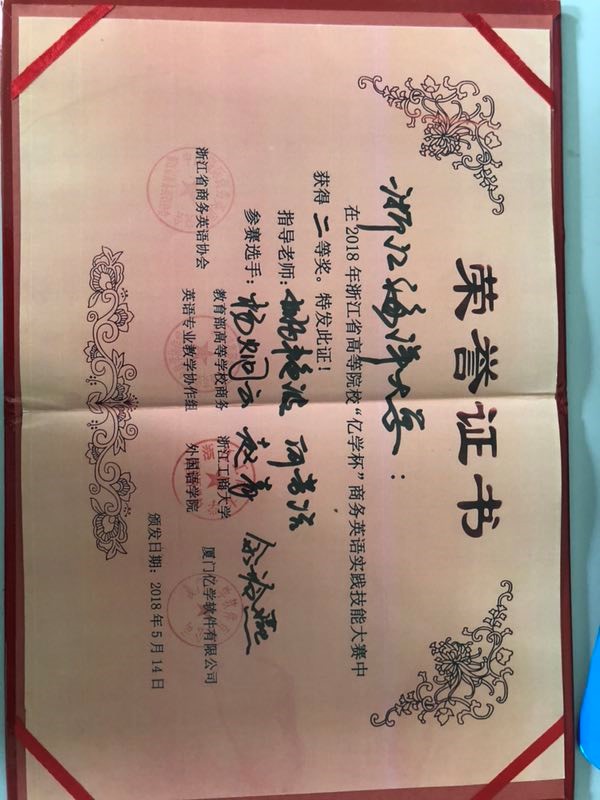 荣誉证书
浙江海洋大学：
在2018年浙江省高等院校“亿学杯”商务英语实践技能大赛中
获得 二 等奖。特发此证！
指导老师：
参赛选手：杨炯云
浙江省商务英语协会
教育部高等学校商务
英语专业教学协作组
浙江工商大学
外国语学院
厦门亿学软件有限公司
颁发日期：2018年5月14日